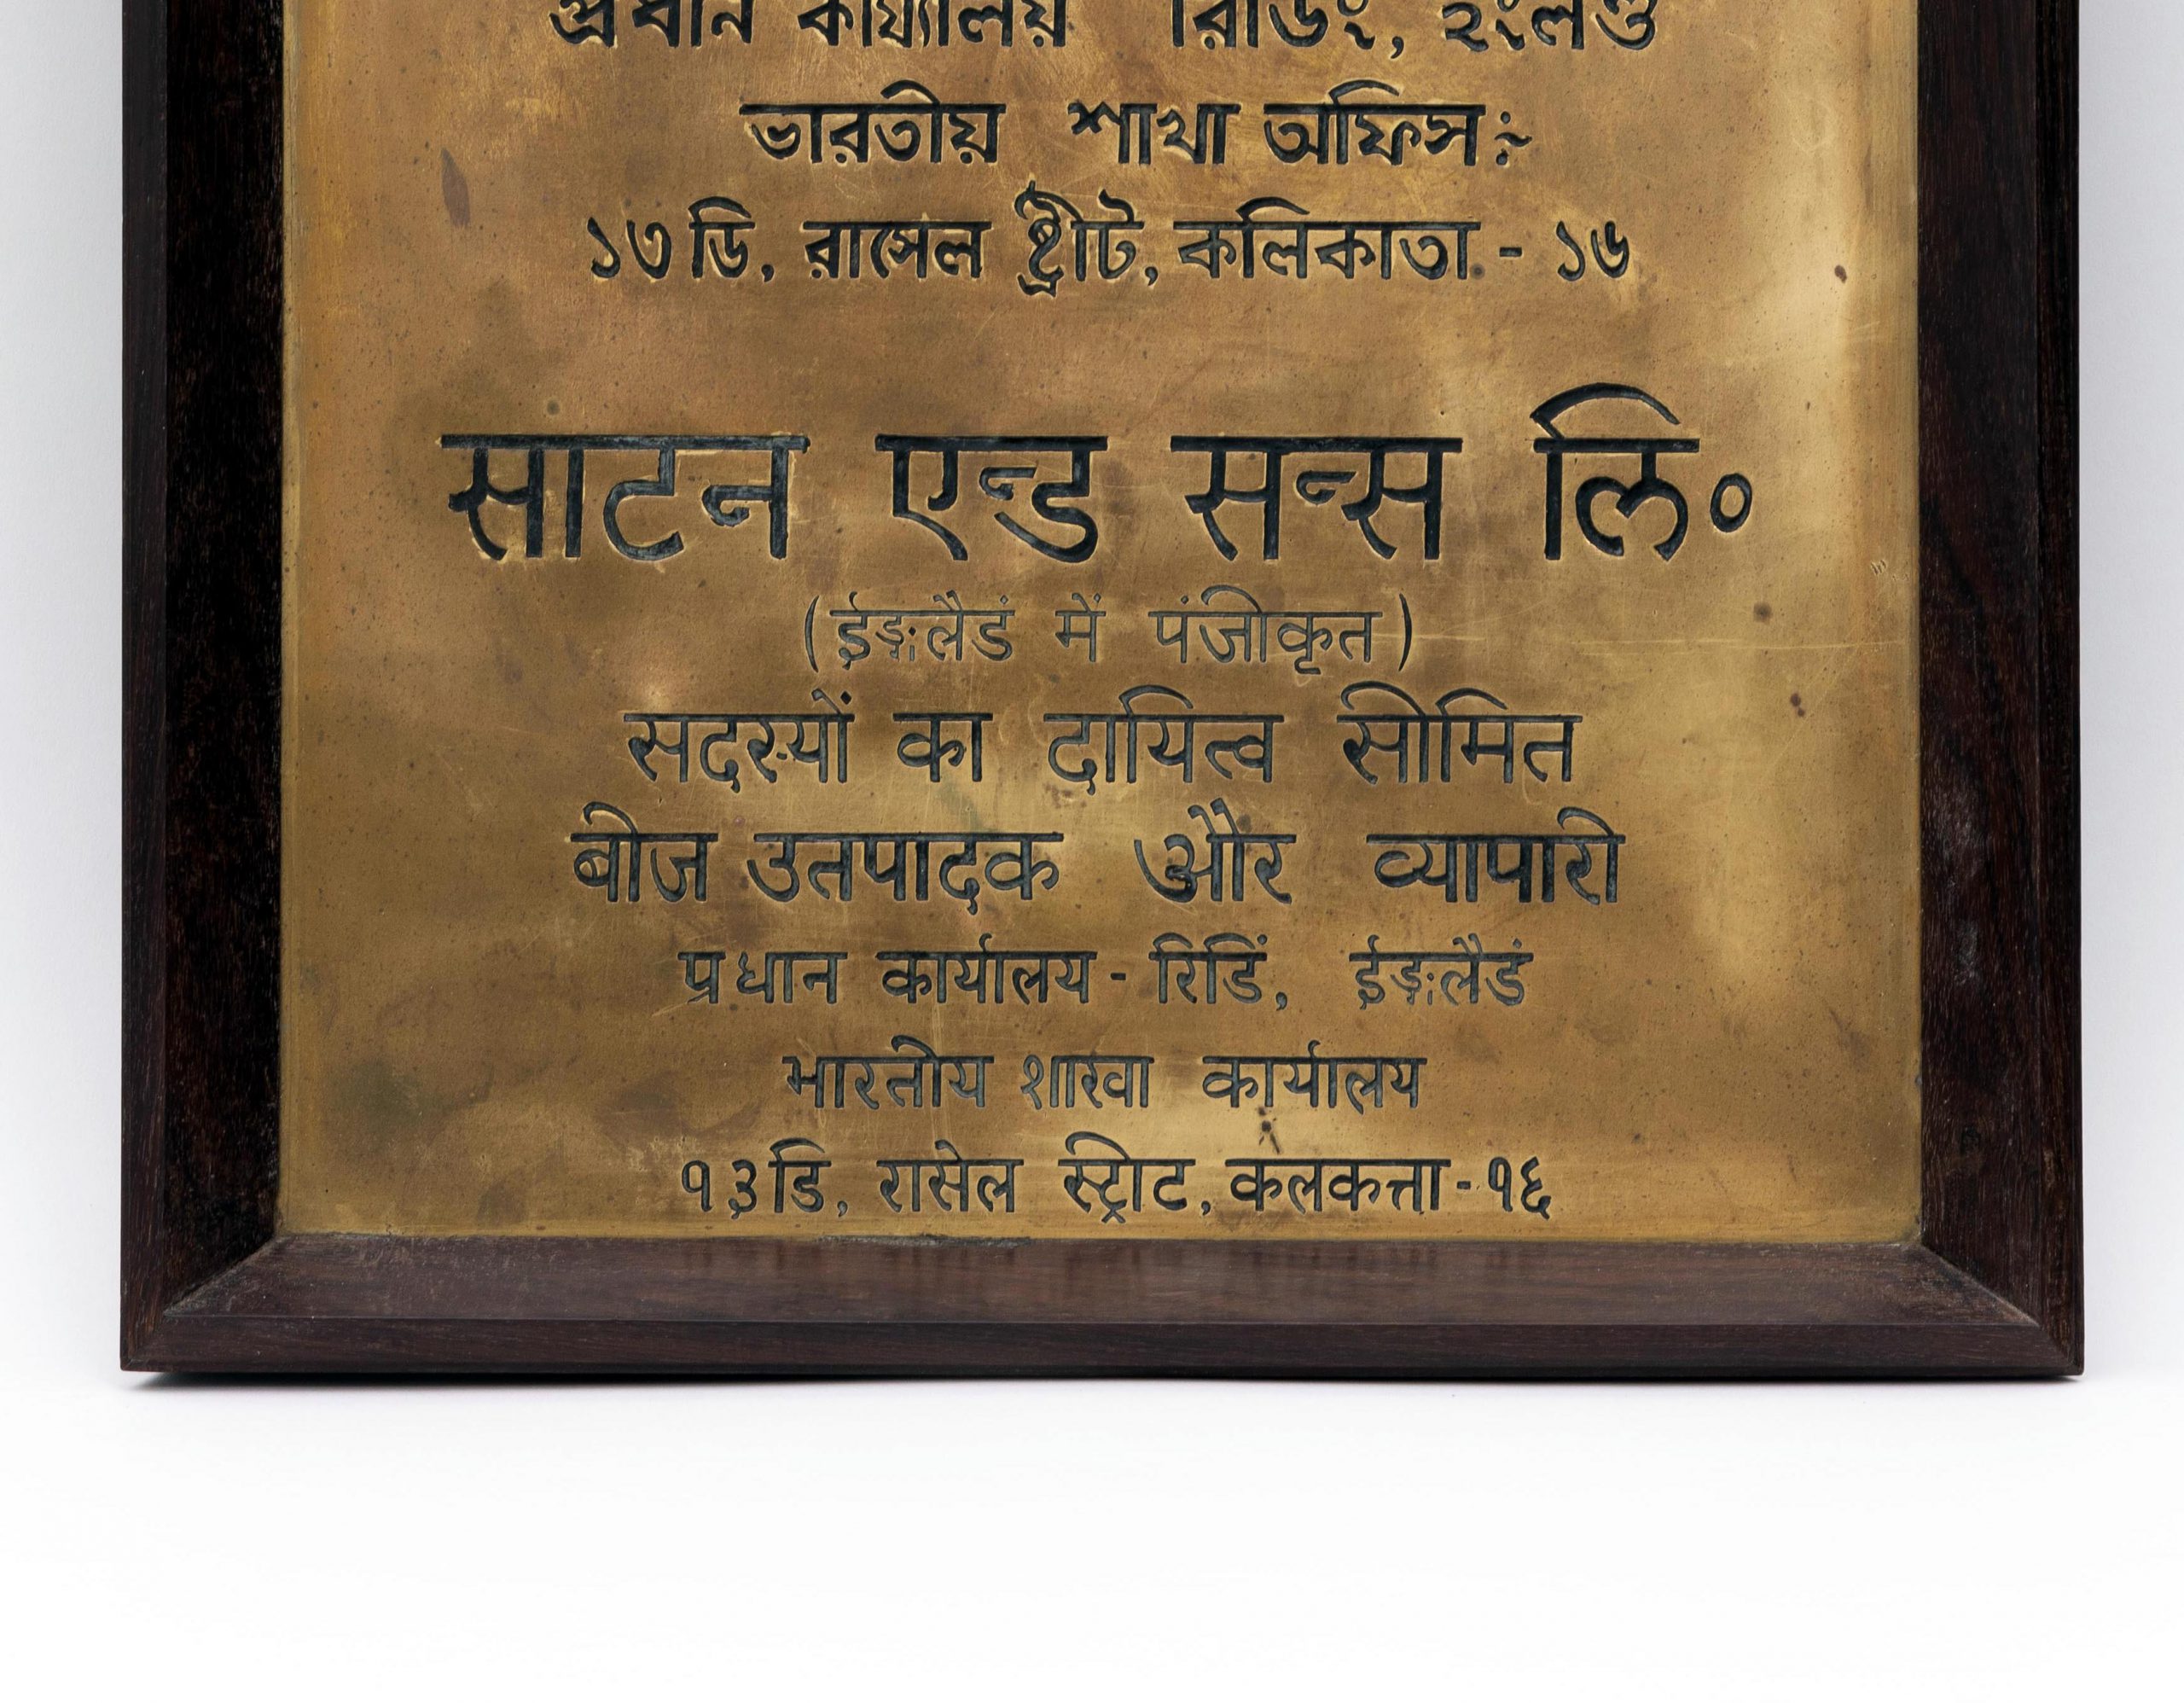 প্রধান কার্য্যালয় রিডিং, ইংলণ্ড
ভারতীয় শাখা অফিস :~
১৩ ডি, রাসেল ষ্ট্রীট, কলিকাতা - ১৬
साटन एन्ड सन्स लि०
(ईङ्गलैडं में पंजीकृत)
सदस्यों का दायित्व सीमित
बीज उतपादक और व्यापारी
प्रधान कार्यालय - रिडिं, ईङ्गलैडं
भारतीय शाखा कार्यालय
१३ डि, रासेल स्ट्रीट, कलकत्ता - १६